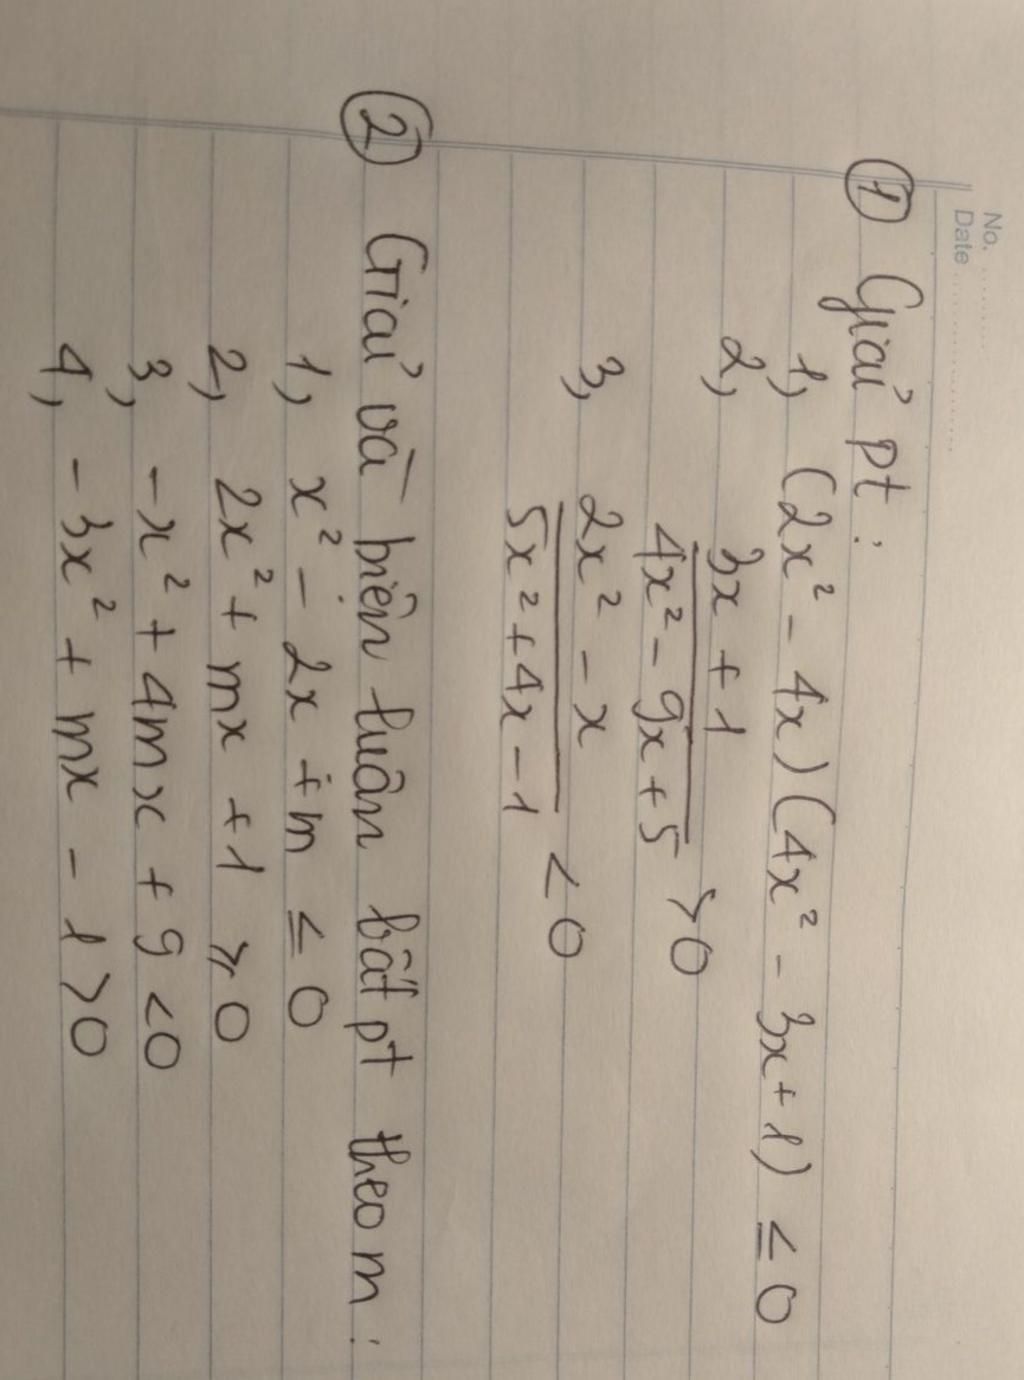 No. ..........
Date ....................
① Giải pt :
1, (2x² - 4x)(4x² - 3x + 1) ≤ 0
2, (3x + 1)/(4x² - 9x + 5) > 0
3, (2x² - x)/(5x² + 4x - 1) < 0
② Giải và biện luận bất pt theo m :
1, x² - 2x + m ≤ 0
2, 2x² + mx + 1 ⩾ 0
3, -x² + 4mx + 9 < 0
4, -3x² + mx - 1 > 0